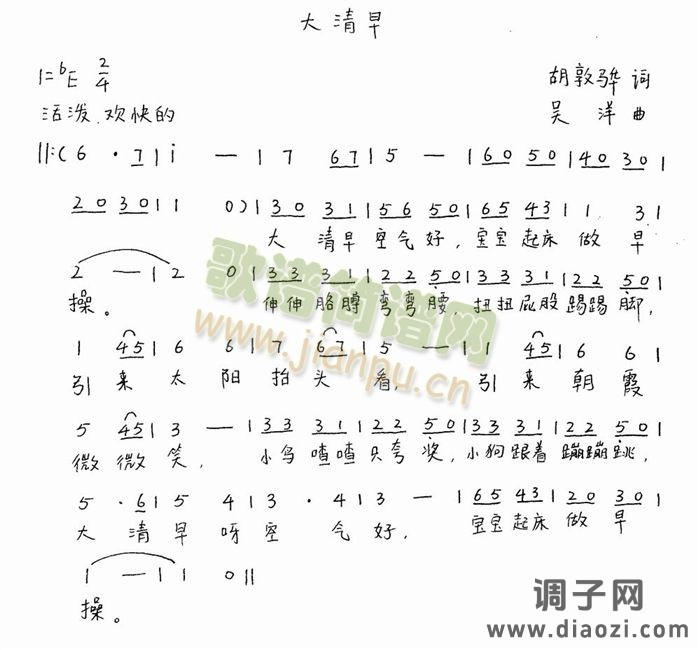 大清早
1=♭E 2/4
胡敦骅 词
活泼、欢快的
吴洋 曲
||:(6 · 7 | i — | 7 67 | 5 — | 60 50 | 40 30 |
20 30 | 1 0) | 30 31 | 56 50 | 65 43 | 1 1. 3 |
大 清早 空气好，宝宝起床 做 早
2 — | 2 0 | 33 31 | 22 50 | 33 31 | 22 50 |
操。 伸伸胳膊弯弯腰，扭扭屁股踢踢脚，
1 45 | 6 6 | 7 67 | 5 — | 1 45 | 6 6 |
引来太阳抬头看， 引来朝霞
5 45 | 3 — | 33 31 | 22 50 | 33 31 | 22 50 |
微微笑，小鸟喳喳只夸奖，小狗跟着蹦蹦跳，
5 · 6 | 5 4 | 3 · 4 | 3 — | 65 43 | 20 30 |
大清早呀空气好， 宝宝起床做早
1 — | 1 0 ||
操。
歌谱简谱网
www.jianpu.cn
调子网
www.diaozi.com